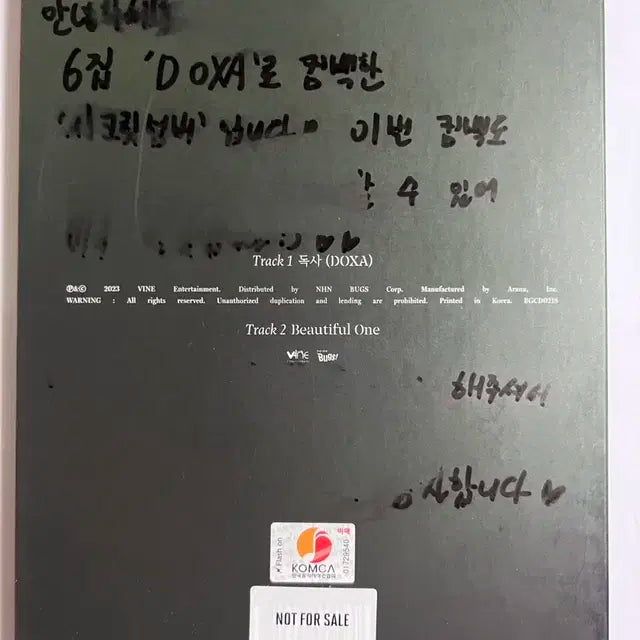 안녕하세요
6집 'DOXA'로 컴백한
'시크릿넘버' 입니다. 이번 컴백도
수 있어
Track 1 독사 (DOXA)
℗&© 2023 VINE Entertainment. Distributed by NHN BUGS Corp. Manufactured by Arana, Inc.
WARNING : All rights reserved. Unauthorized duplication and lending are prohibited. Printed in Korea. BGCD0218
Track 2 Beautiful One
VINE BUGS!
해주셔서
감사합니다♥
Flash on
비매
01729540
KOMCA
한국음악저작권협회
NOT FOR SALE